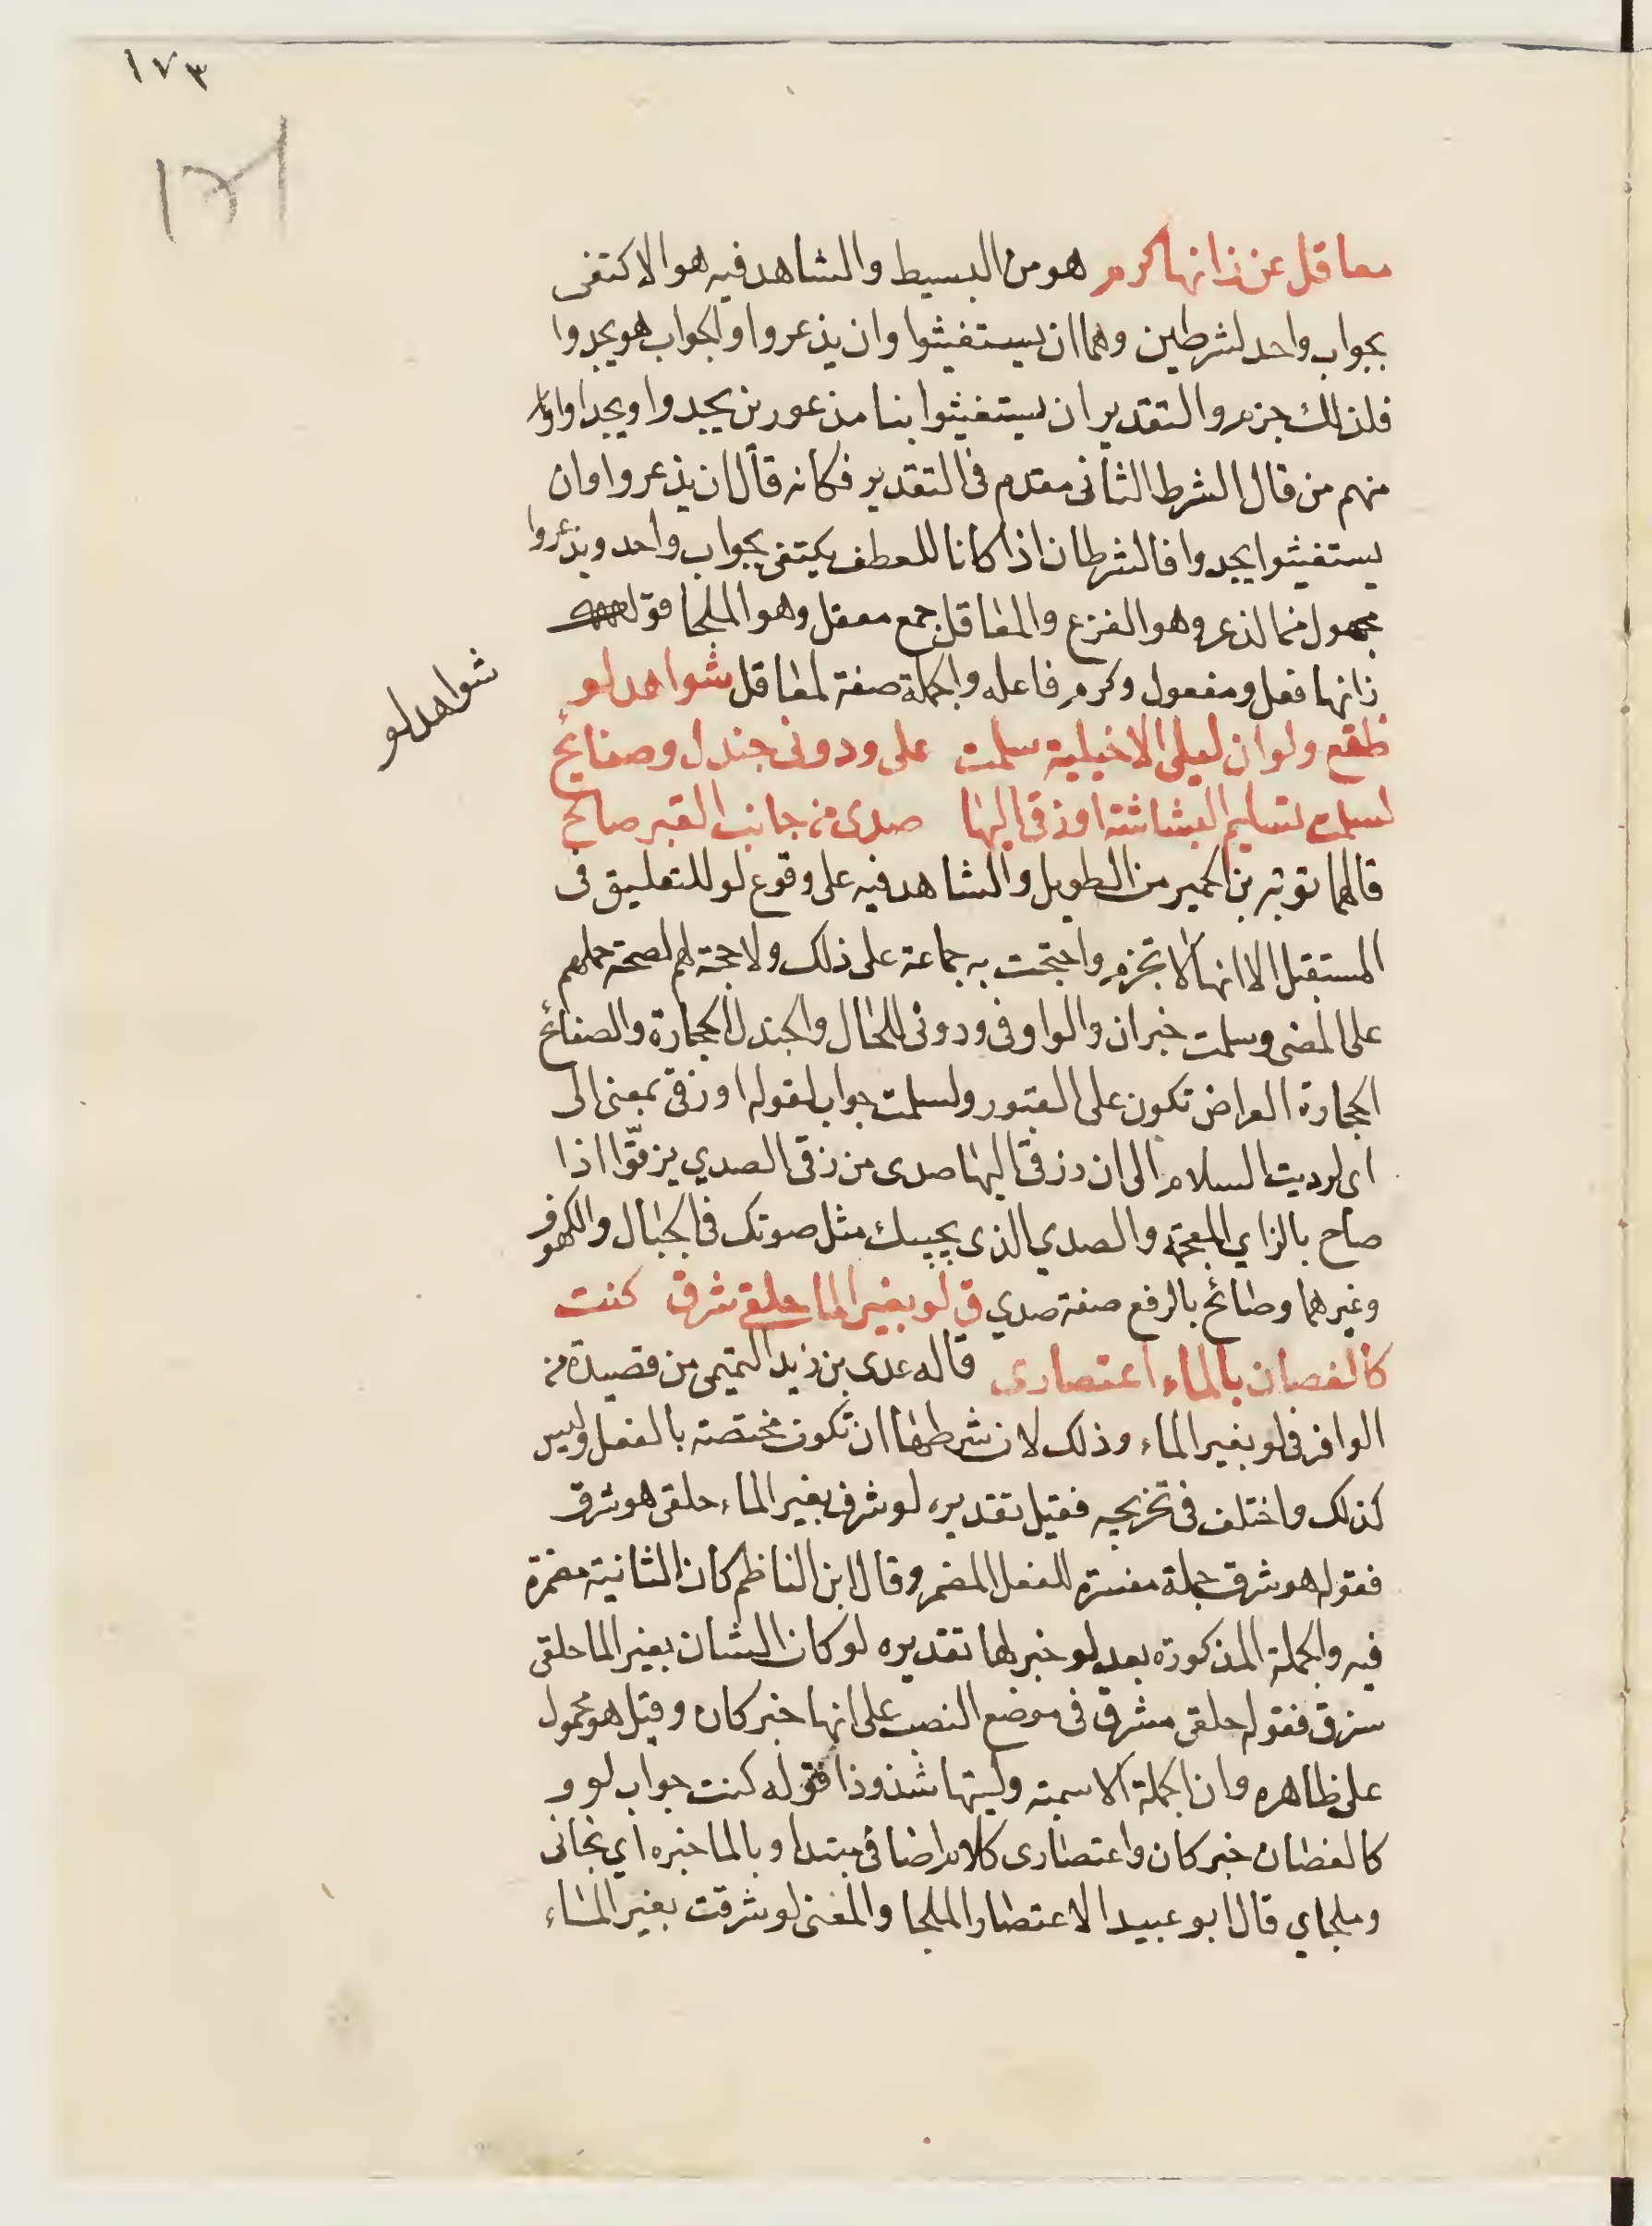 ١٧٣
معاقل عن زانها كرم هو من البسيط والشاهد فيه هو الاكتفى
بجواب واحد لشرطين وهما ان يستغيثوا وان يذعروا والجواب هو يجدوا
فلذلك جزم والتقدير ان يستغيثوا بنا مذعورين يجدوا ويجدا واوار
منهم من قال الشرط الثانى مقدم فى التقدير فكانه قال ان يذعروا وان
يستغيثوا يجدوا فالشرطان اذا كانا للعطف يكتفى بجواب واحد ويذعروا
مجهول من الذعر وهو الفزع والمعاقل جمع معقل وهو الملجا قوله
زانها فعل ومفعول وكرم فاعله والجملة صفة لمعاقل شواهد لو
شواهد لو
ظقع ولو ان ليلى الاخيلية سلمت على ودونى جندل وصفايح
لسلمت تسليم البشاشة او زقى اليها صدى من جانب القبر صائح
قالهما توبة بن الحمير من الطويل والشاهد فيه على وقوع لو للتعليق فى
المستقبل الا انها لا تجزم واحتجت به جماعة على ذلك ولا حجة لهم لصحة حملهم
على المضى وسلمت خبر ان والواو فى ودونى للحال والجندل الحجارة والصفائح
الحجارة العراض تكون على القبور ولسلمت جواب لقوله او زقى بمعنى الى
اى لرديت السلام الى ان زقى اليها صدى من زقى الصدي يزقّوا اذا
صاح بالزاي المعجمة والصدي الذى يجيبك مثل صوتك فى الجبال والكهوف
وغيرهما وصائح بالرفع صفة صدي ق لو بغير الما حلقى شرق كنت
كالغصان بالماء اعتصارى قاله عدى بن زيد التميمى من قصيدة من
الوافر فى لو بغير الماء وذلك لان شرطها ان تكون مختصة بالفعل وليس
كذلك واختلف فى تخريجه فقيل تقديره لو شرق بغير الماء حلقى هو شرق
فقوله هو شرق جملة مفسرة للفعل المضمر وقال ابن الناظم كان الثانية مضمرة
فيه والجملة المذكورة بعد لو خبر لها تقديره لو كان الشان بغير الما حلقى
سرق فقوله حلقى مشرق فى موضع النصب على انها خبر كان وقيل هو محمول
على ظاهره وان الجملة الاسمية وليتها شذوذا فقوله كنت جواب لو و
كالغصان خبر كان واعتصارى كلام اضافى مبتدا وبالما خبره اي نجاتى
وملجاي قال ابو عبيد الاعتصار الملجا والمعنى لو شرقت بغير الماء